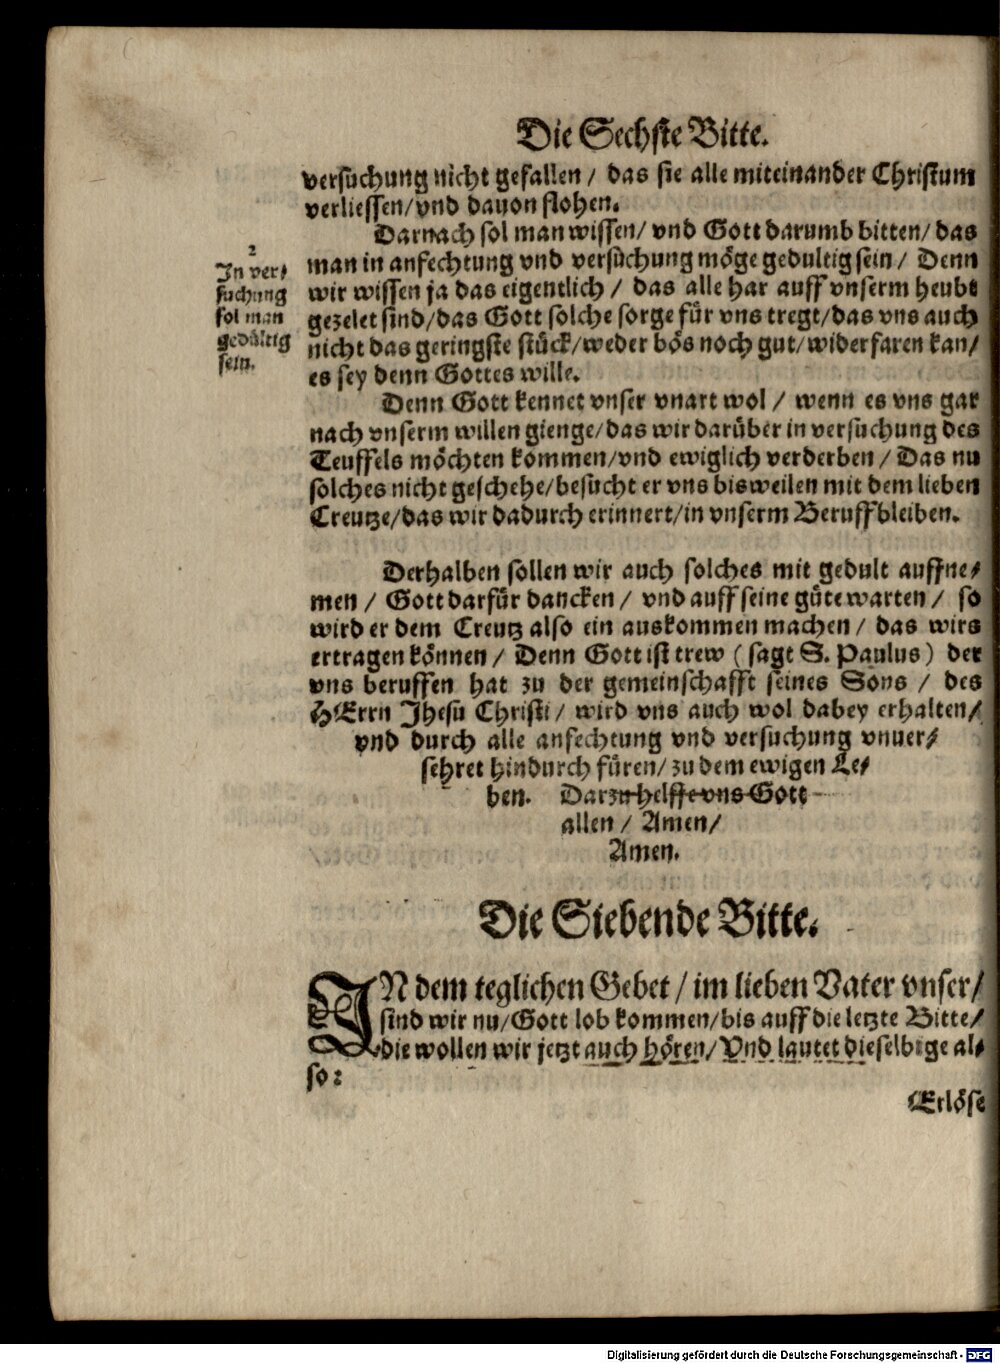 Die Sechste Bitte.
versuchung nicht gefallen / das sie alle miteinander Christum
verliessen/vnd dauon flohen.
Darnach sol man wissen/ vnd Gott darumb bitten/ das
man in anfechtung vnd versuchung möge gedultig sein / Denn
wir wissen ja das eigentlich / das alle har auff vnserm heubt
gezelet sind/das Gott solche sorge für vns tregt/das vns auch
nicht das geringste stück/weder bös noch gut/widerfaren kan/
es sey denn Gottes wille.
2
In ver⸗
suchung
sol man
gedültig
sein.
Denn Gott kennet vnser vnart wol / wenn es vns gar
nach vnserm willen gienge/das wir darüber in versuchung des
Teuffels möchten kommen/vnd ewiglich verderben / Das nu
solches nicht geschehe/besucht er vns bisweilen mit dem lieben
Creutze/das wir dadurch erinnert/in vnserm Beruff bleiben.
Derhalben sollen wir auch solches mit gedult auffne⸗
men / Gott darfür dancken / vnd auff seine güte warten / so
wird er dem Creutz also ein auskommen machen / das wirs
ertragen können / Denn Gott ist trew ( sagt S. Paulus ) der
vns beruffen hat zu der gemeinschafft seines Sons / des
HErrn Jhesu Christi / wird vns auch wol dabey erhalten/
vnd durch alle anfechtung vnd versuchung vnuer⸗
sehret hindurch füren/ zu dem ewigen Le⸗
ben. Darzu helffe vns Gott
allen / Amen/
Amen.
Die Siebende Bitte.
IN dem teglichen Gebet / im lieben Vater vnser/
sind wir nu/Gott lob kommen/bis auff die letzte Bitte/
die wollen wir jetzt auch hören/ Vnd lautet dieselbige al⸗
so:
Erlöse
Digitalisierung gefördert durch die Deutsche Forschungsgemeinschaft - DFG